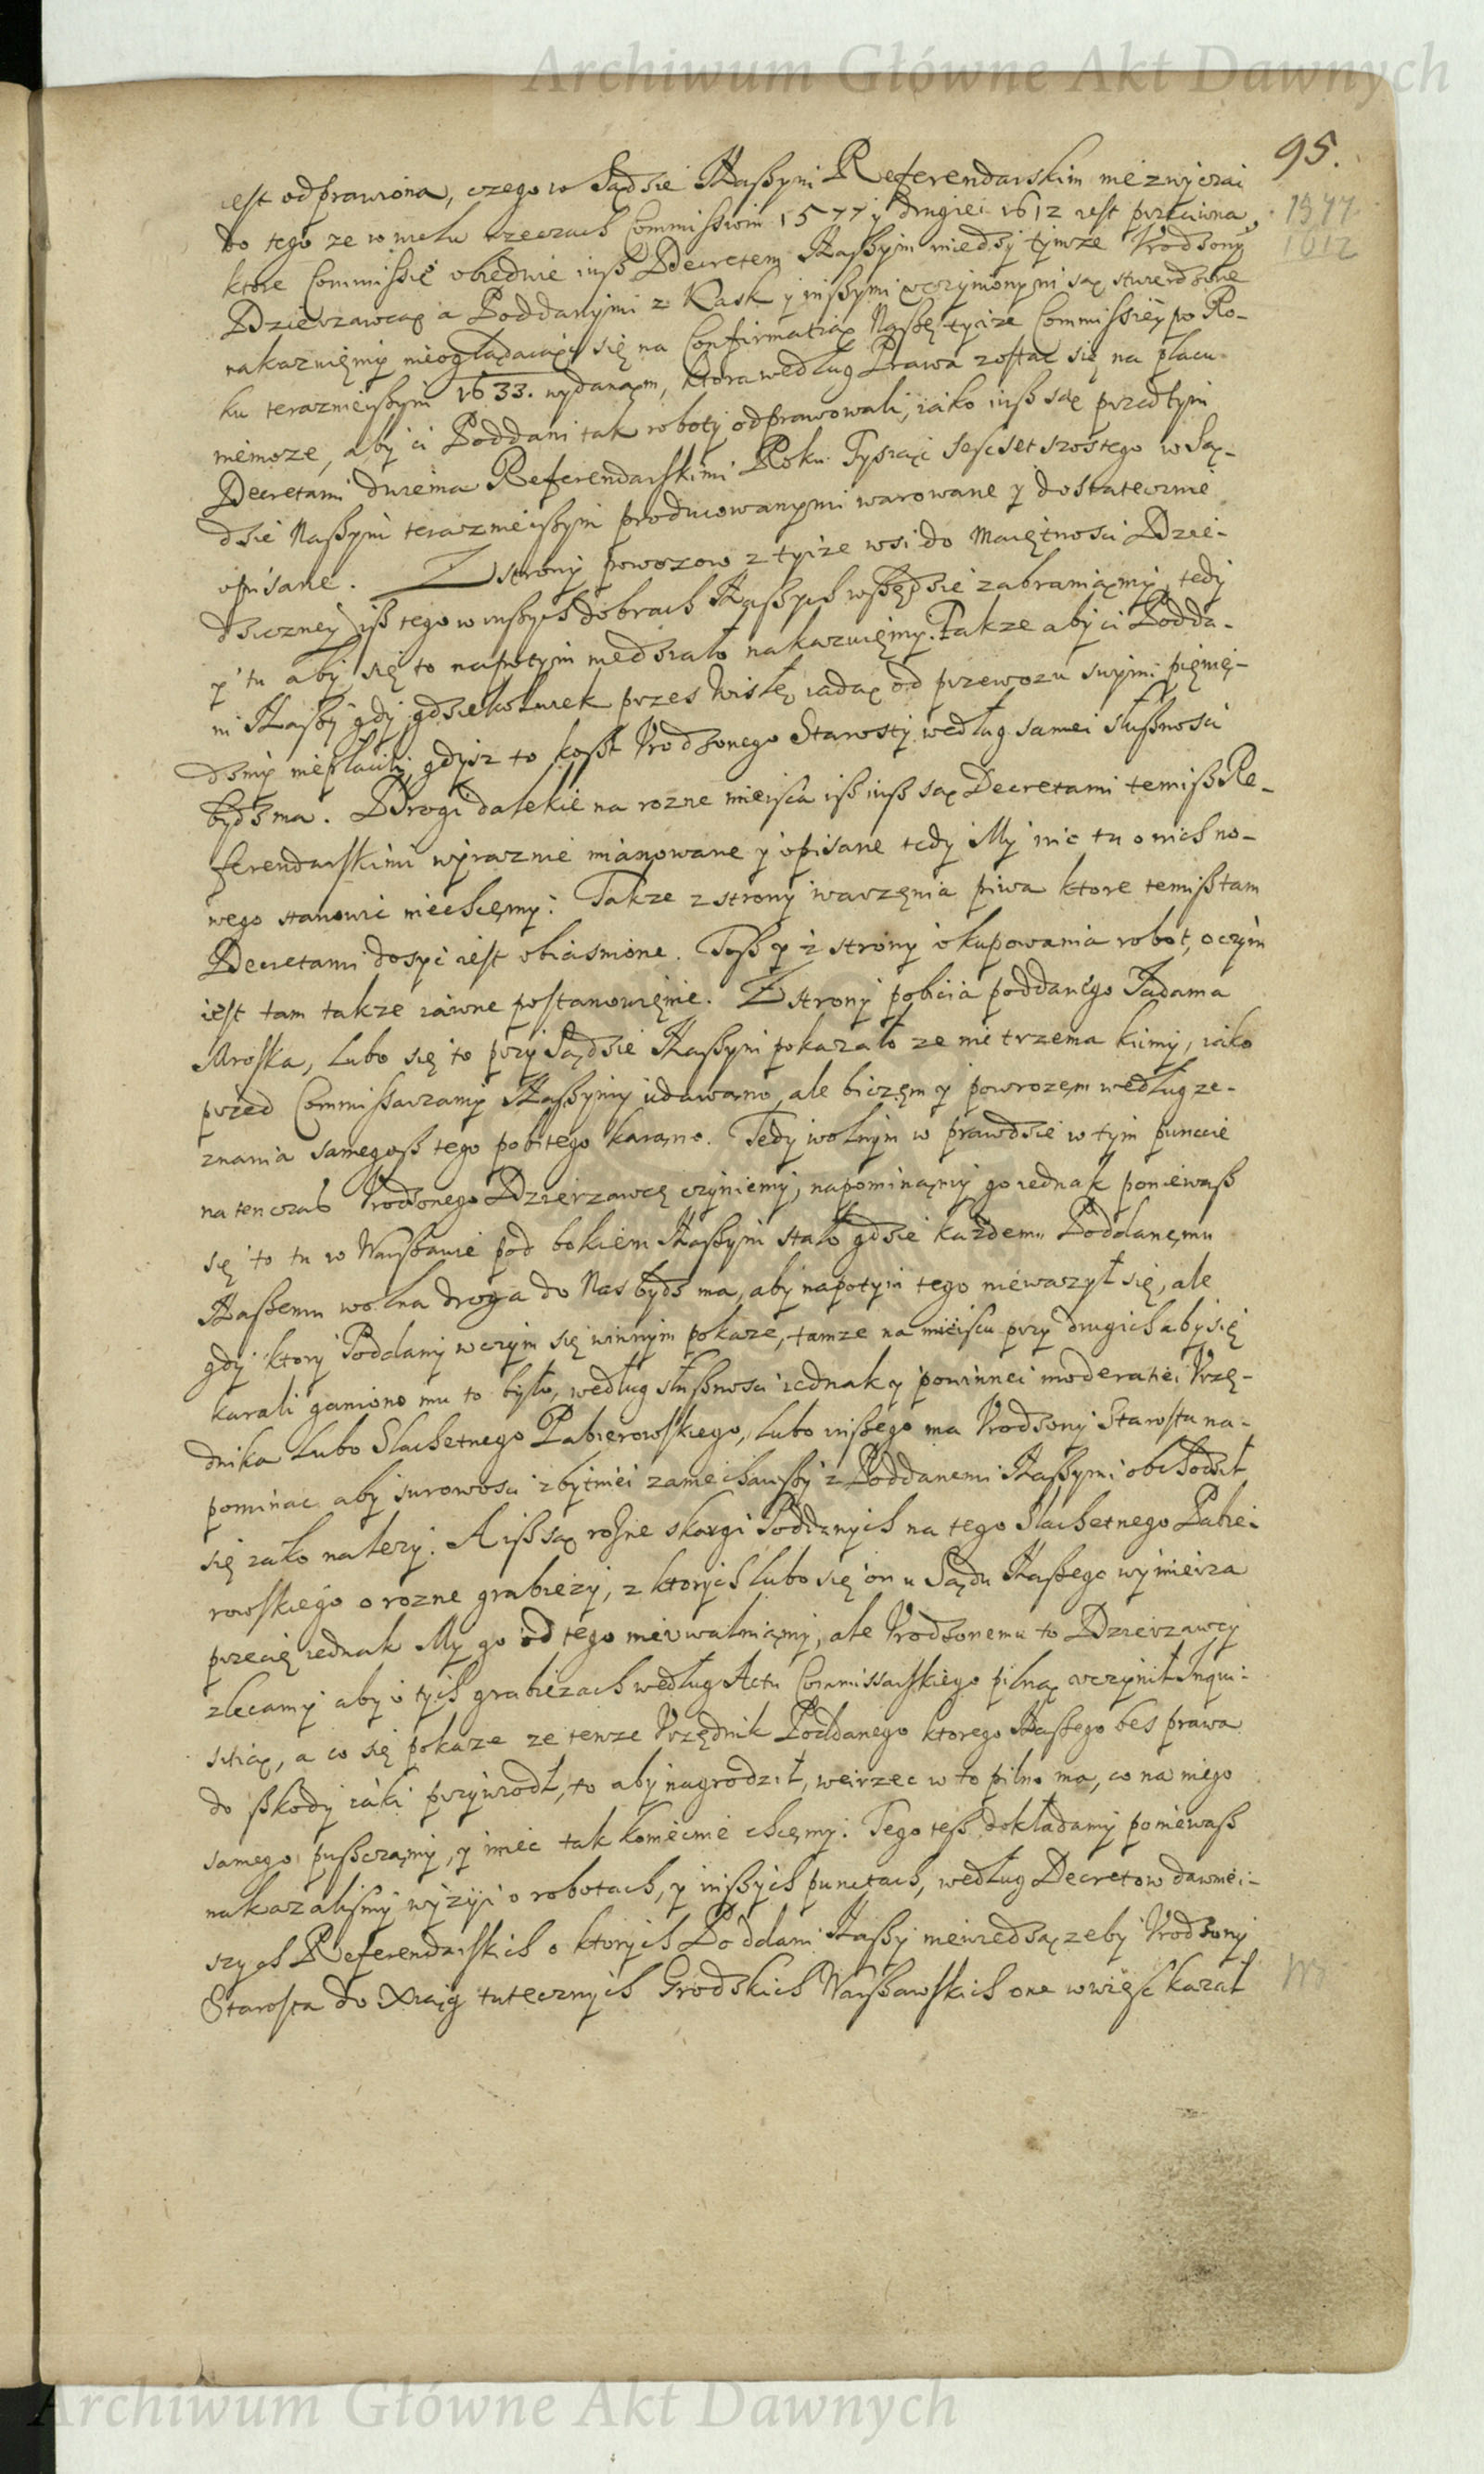 Archiwum Główne Akt Dawnych
95.
iest odprawiona, czego w Sądzie Naszym Referendarskim niezwyczai
do tego ze w wielu rzeczach Commissiom 1577 y drugiei 1612 iest przeciwna,
1577
1612
ktore Commissie obiedwie iusz Decretem Naszym miedzy tymze Vrodzonym
Dzierzawcą a Poddanymi z Kask y inszymi uczynionymi są stwierdzone
nakazuięmy nieoglądaiąc się na Confirmatią Naszę tycize Commissiey po Ro-
ku terazniejszym 1633. wydanąm, ktora według Prawa zostac się na placu
niemoze, aby ci Poddani tak roboty odprawowali, iako iusz są przedtym
Decretami dwiema Referendarskimi Roku Tysiąc seschset szostego w Są-
dzie Naszym terazniejszym producowanymi warowane y dostatecznie
opisane. Z strony powozow z tycize wsi do Maiętnosci Dzie-
dziczney isz tego w inszych dobrach Naszych wszędzie zabraniamy, tedy
y tu aby się to napotym niedziało nakazuięmy. Takze aby ci Podda-
ni Naszy gdy gdziekolwiek przes Wisłę iadą od przewozu swymi pięnię-
dzmi niepłacili, gdysz to koszt Vrodzonego Starosty według samei słusznosci
bydz ma. Drogi dalekie na rozne mieisca isz iusz są Decretami temisz Re-
ferendarskimi wyraznie mianowane y opisane tedy My nic tu o nich no-
wego stanowic niechcęmy. Takze z strony warzęnia piwa ktore temisz tam
Decretami dosyc iest obiasnione. Tosz y z strony okupowania robot, o czym
iest tam takze iawne postanowięnie. Z strony pobicia poddanego Jadama
Mroska, lubo się to przy Sądzie Naszym pokazało ze nie trzema kiimy, iako
przed Commissarzamy Naszymy udawano, ale biczęm y powrozęm według ze-
znania samegosz tego pobitego karano. Tedy wolnym w prawdzie w tym puncie
na ten czas Vrodzonego Dzierzawcę czyniemy, napominamy go iednak poniewasz
się to tu w Warszawie pod bokiem Naszym stało gdzie kazdemu Poddanęmu
Naszemu wolna droga do Nas bydz ma, aby napotym tego niewazył się, ale
gdy ktory Poddany w czym się winnym pokaze, tamze na mieiscu przy drugich aby się
karali ganiono mu to było, według słusznosci iednak y powinnei moderatiei Vrzę-
dnika lubo Slachetnego Pabierowskiego, lubo inszego ma Vrodzony Starosta na-
pominac aby surowosci zbytniei zaniechawszy z Poddanemi Naszymi obchodził
się iako nalezy. A isz są rozne skargi Poddanych na tego Slachetnego Pabie-
rowskiego o rozne grabiezy, z ktorych lubo się on u Sądu Naszego wymierza
przecię iednak My go od tego nieuwalniamy, ale Vrodzonemu to Dzierzawcy
zlecamy aby o tych grabiezach według Actu Commissarskiego pilną uczynił Inqui-
sitią, a co się pokaze ze tenze Vrzędnik Poddanego ktorego Naszego bes prawa
do szkody iaki przywiodł, to aby nagrodził, weirzec w to pilno ma, co na niego
samego puszczamy, y miec tak koniecnie chcęmy. Tego tesz dokładamy poniewasz
nakazalismy wyzyi o robotach, y inszych punctach, według Decretow dawniei-
szych Referendarskich o ktorych Poddani Naszy niewiedzą zeby Vrodzony
Starosta do Xiąg tutecznych Grodzkich Warszawskich one wwiesc kazał
Archiwum Główne Akt Dawnych